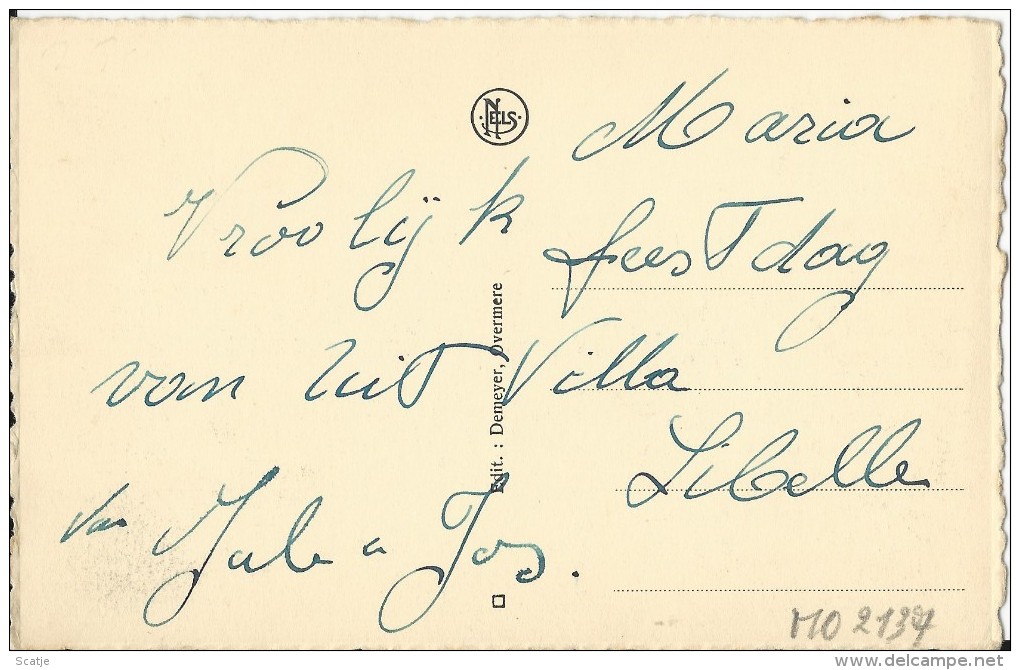 NELS
Maria
Vroolijk feestdag
van uit Villa
Libelle
van Jul e Jos.
Edit. : Demeyer, Overmere
MO 2137
Scatje
delcampe.net